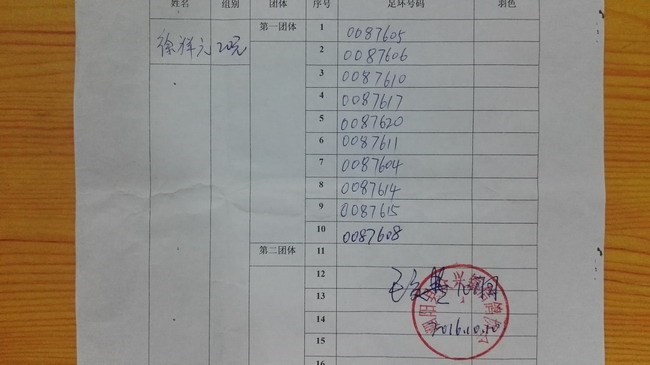 姓名 组别 团体 序号 足环号码 羽色
徐祥元 20元 第一团体 1 0087605
2 0087606
3 0087610
4 0087617
5 0087620
6 0087611
7 0087604
8 0087614
9 0087615
10 0087608
第二团体 11
12
13
14
2016.10.20
15
16